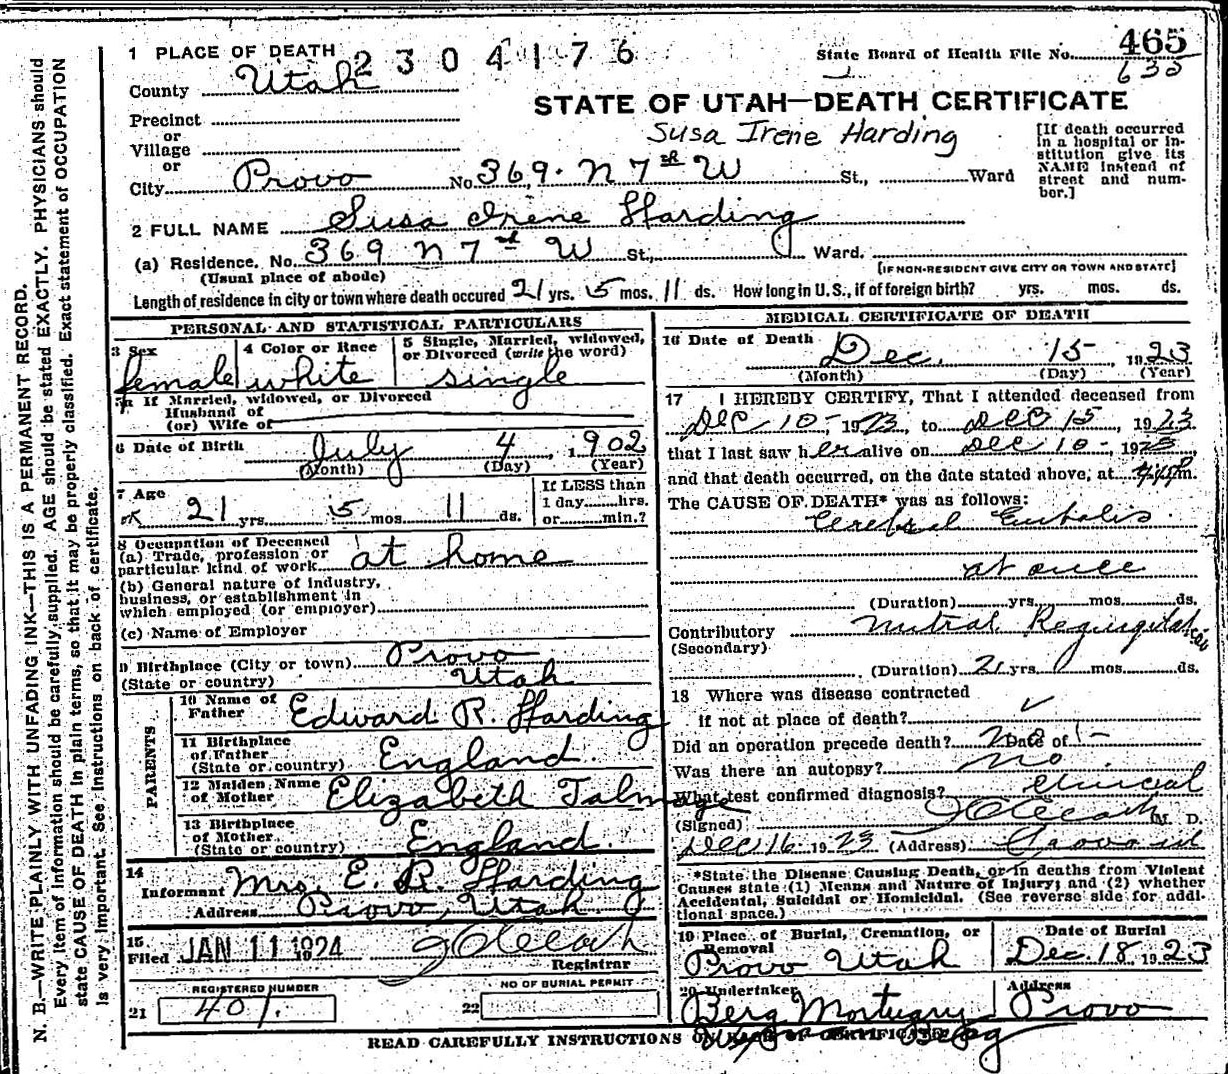 N. B.—WRITE PLAINLY WITH UNFADING INK—THIS IS A PERMANENT RECORD.
Every item of information should be carefully supplied. AGE should be stated EXACTLY. PHYSICIANS should
state CAUSE OF DEATH in plain terms, so that it may be properly classified. Exact statement of OCCUPATION
is very important. See instructions on back of certificate.
1 PLACE OF DEATH 2304176
State Board of Health File No. 465
County Utah
STATE OF UTAH—DEATH CERTIFICATE
Precinct
or
Village
or
Susa Irene Harding
[If death occurred in a hospital or institution give its NAME instead of street and number.]
City Provo No. 369. N 7 W St., Ward
2 FULL NAME Susa Irene Harding
(a) Residence. No. 369 N 7 W St., Ward.
(Usual place of abode)
[IF NON-RESIDENT GIVE CITY OR TOWN AND STATE]
Length of residence in city or town where death occured 21 yrs. 5 mos. 11 ds. How long in U.S., if of foreign birth? yrs. mos. ds.
PERSONAL AND STATISTICAL PARTICULARS
3 Sex female
4 Color or Race white
5 Single, Married, widowed, or Divorced (write the word) single
If Married, widowed, or Divorced
Husband of
(or) Wife of
6 Date of Birth July 4, 1902
(Month) (Day) (Year)
7 Age 21 yrs. 5 mos. 11 ds.
If LESS than
1 day hrs.
or min.?
8 Occupation of Deceased
(a) Trade, profession or
particular kind of work at home
(b) General nature of industry,
business, or establishment in
which employed (or employer)
(c) Name of Employer
9 Birthplace (City or town) Provo
(State or country) Utah
PARENTS
10 Name of
Father Edward R. Harding
11 Birthplace
of Father
(State or country) England.
12 Maiden Name
of Mother Elizabeth Talmage
13 Birthplace
of Mother
(State or country) England.
14
Informant Mrs. E. R. Harding
Address Provo, Utah
15
Filed JAN 11 1924
Registrar
REGISTERED NUMBER
21 401.
NO OF BURIAL PERMIT
22
MEDICAL CERTIFICATE OF DEATH
16 Date of Death Dec. 15 1923
(Month) (Day) (Year)
17 I HEREBY CERTIFY, That I attended deceased from
Dec 10- 1923, to Dec 15 1923.
that I last saw her alive on Dec 10- 1923,
and that death occurred, on the date stated above, at m.
The CAUSE OF DEATH* was as follows:
Cerebral Embolis
at once
(Duration) yrs. mos. ds.
Contributory Mitral Regurgitation
(Secondary)
(Duration) 21 yrs. mos. ds.
18 Where was disease contracted
if not at place of death?
Did an operation precede death? no Date of
Was there an autopsy? no
What test confirmed diagnosis? clinical
(Signed) M. D.
Dec 16 1923 (Address) Provo
*State the Disease Causing Death, or in deaths from Violent
Causes state (1) Means and Nature of Injury; and (2) whether
Accidental, Suicidal or Homicidal. (See reverse side for addi-
tional space.)
19 Place of Burial, Cremation, or
Removal
Provo Utah
Date of Burial
Dec. 18 1923
20 Undertaker
Berg Mortuary
Address
Provo
READ CAREFULLY INSTRUCTIONS ON BACK OF CERTIFICATE